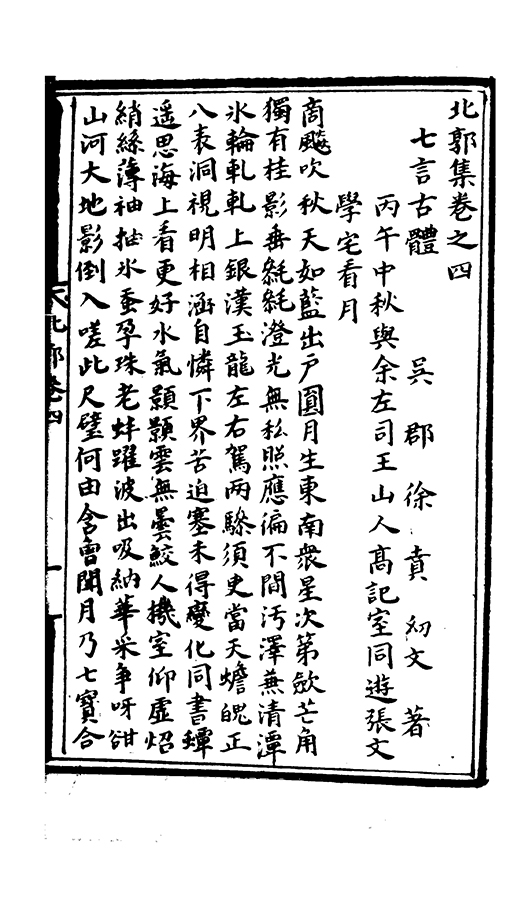 北郭集卷之四
七言古體　吳郡徐賁幼文著
丙午中秋與余左司王山人高記室同遊張文
學宅看月
商飈吹秋天如藍出戶圓月生東南衆星次第歛芒角
獨有桂影垂毿毿澄光無私照應徧不間汚澤兼清潭
氷輪軋軋上銀漢玉龍左右駕兩驂須臾當天蟾魄正
八表洞視明相涵自憐下界苦迫塞未得變化同書蟫
遥思海上看更好水氣顥顥雲無曇鮫人機室仰虛炤
綃絲薄袖抽氷蚕孕珠老蚌躍波出吸納華采爭呀谽
山河大地影倒入嗟此尺璧何由含曾聞月乃七寶合
北郭卷四
一